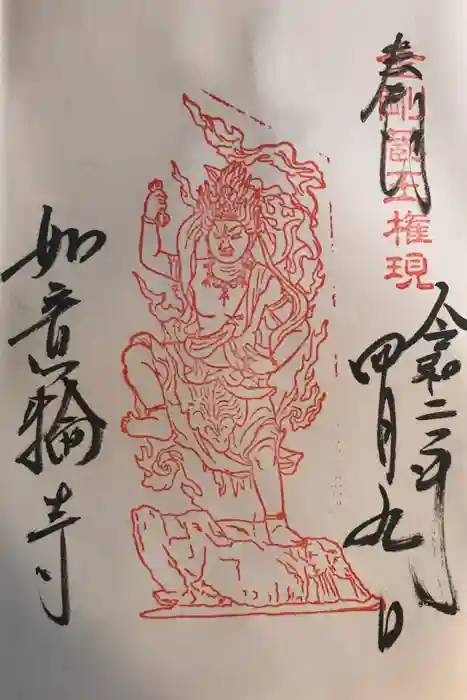 奉拝
金剛蔵王権現
令和二年
四月九日
如意輪寺